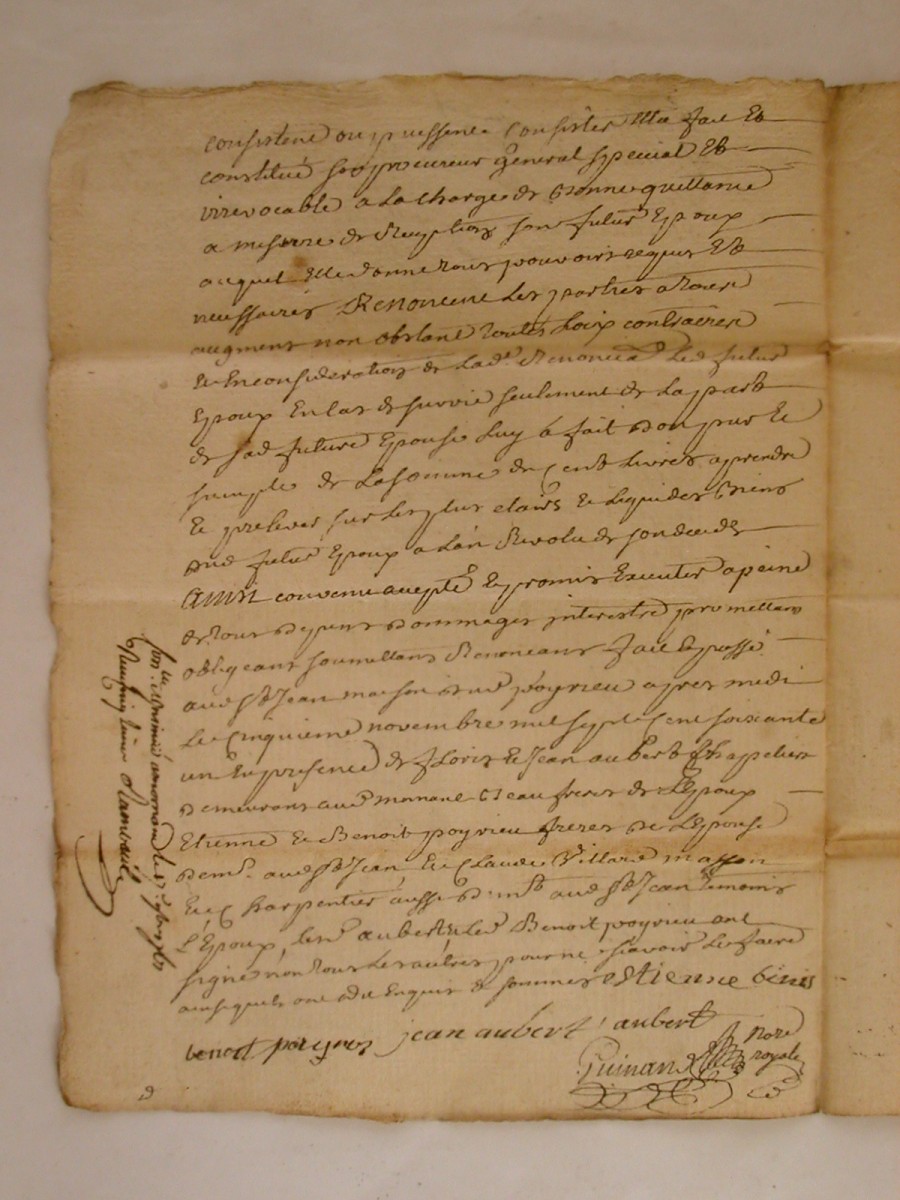 consistent ou puissent Consister Elle fait Et
constitué son procureur general special Et
irrevocable a La charge de Bonne quittance
a mesure de Reception son futur Epoux
auquel Elle donne tous pouvoirs requis Et
necessaires Renoncent Les parties a tout
augment non obstant toutes Loix contraires
Et En consideration de Lad.e Renonci.on Led futur
Epoux En Cas de survie seulement de La part
de sad future Epouse Luy a fait Don pur Et
simple de La somme de Cent Livres a prendre
Et prelever sur Les plus clairs Et Liquides Biens
dud futur Epoux a L'an Revolu de son deceds
Ainsi convenu accepté Et promis Executer a peine
de tous depens Dommages interests promettans
obligeans soumettans Renonceans fait Et passé
aud St Jean maison dud poyrieu apres midi
Le Cinquieme novembre mil sept Cent soixante
un En presence de Et Jean aubert Chapeliers
Demeurans aud Beau freres de L'Epoux
Etienne Et Benoit poyrieu freres de L'Epouse
Dem.t aud St Jean Et Claude Villard masson
Et Charpentier aussi D.mt aud St Jean temoins
L'Epoux aubert Et Benoit poyrieu ont
signé non tous Les autres pour ne sçavoir Le faire
ausequels ont Eté Enquis Et sommés Estienne
benoit jean aubert aubert
Guinand Nore
royal